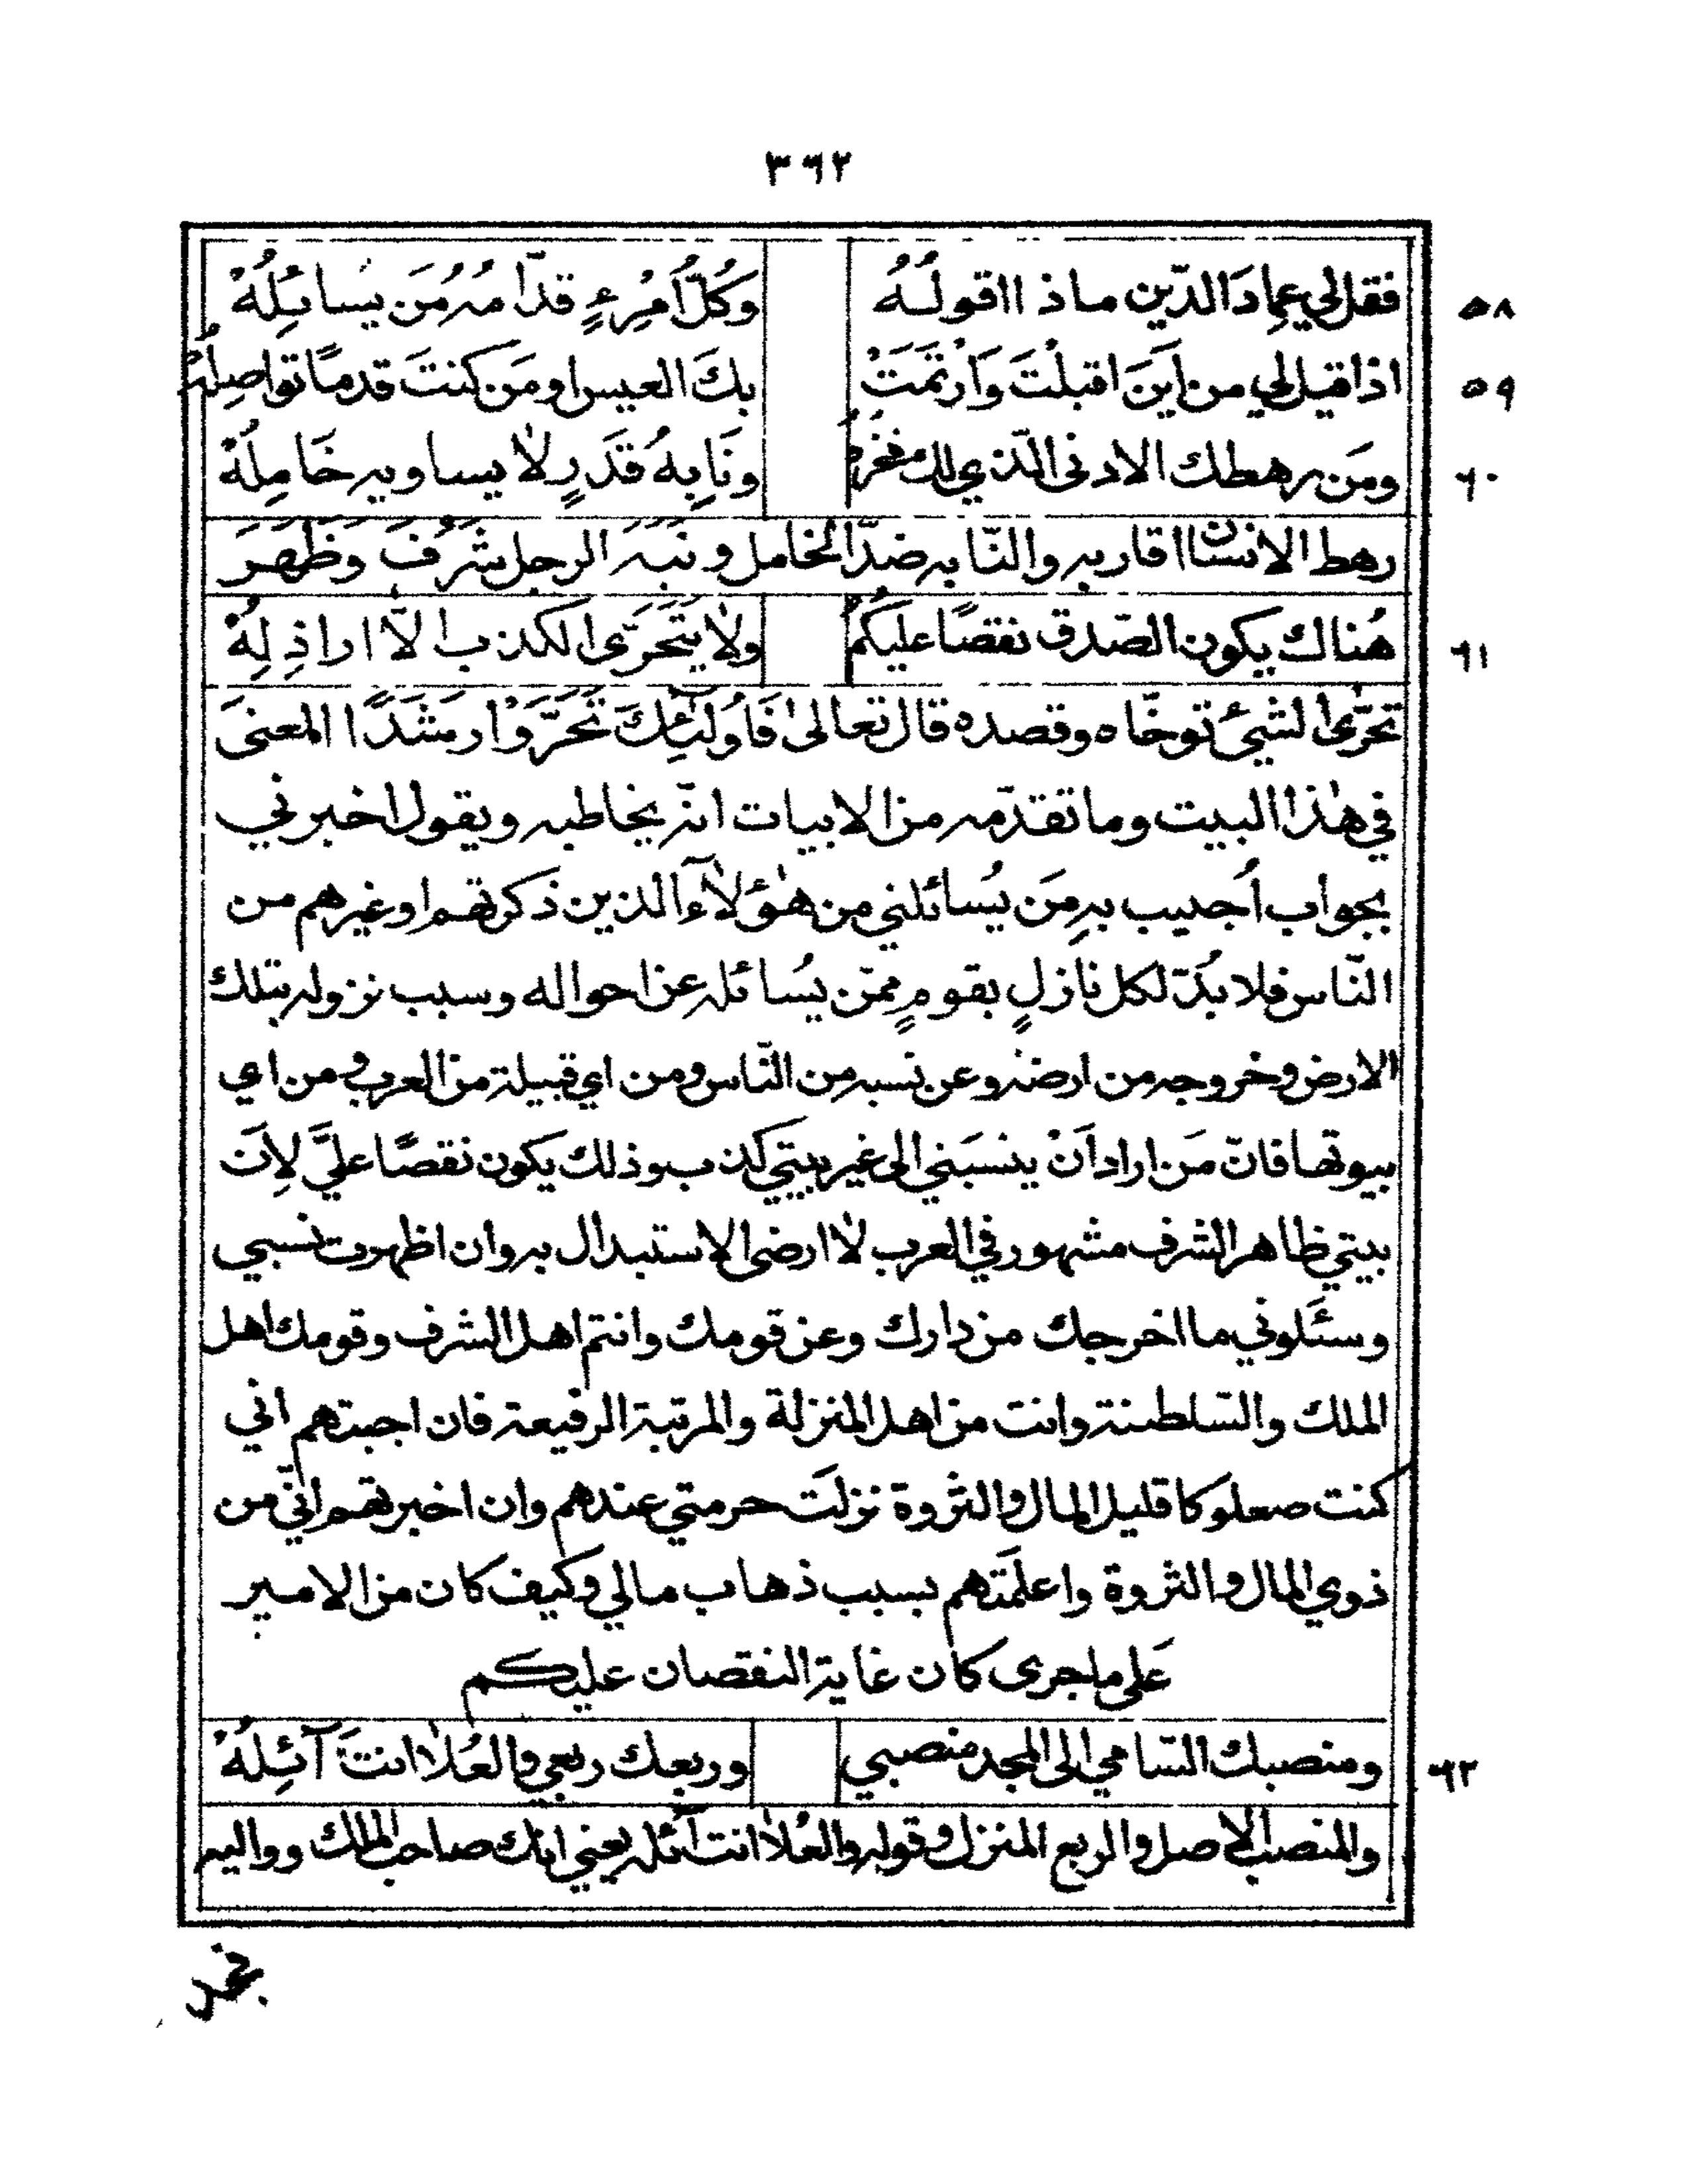 ٣٦٢
٥٨ فقل لي عِمادَ الدّين ماذا اقولُهُ وَكُلُّ اُمْرِءٍ قدّامُهُ مَن يسائِلُهْ
٥٩ اذا قيل لي من اَينَ اقبلْتَ وَارْتَمَتْ بكَ العيس اومَن كنتَ قدمًا تواصِلُهْ
٦٠ ومَن رهطك الادنى الّذي لك مفخَرٌ ونَابِهُ قَدَرٍ لا يساويه خَامِلُهْ
رهط الانسان اقاربه والنّابه ضدّ الخامل ونَبَهَ الرجل شَرُفَ وَظَهَرَ
٦١ هُناك يكون الصّدق نقصًا عليكُمُ ولا يَتَحَرّى الكذب الّا اراذِلُهْ
تحرّى الشيئ توخّاه وقصده قال تعالى فَاُولٰئِكَ تَحَرَّوْا رَشَدًا المعنىَ
في هٰذا البيت وما تقدّمه من الابيات انّه يخاطبه ويقول اخبرني
بجواب اُجيب بهِ مَن يُسائلني من هٰؤلاءِ الذين ذكرتهم اوغيرهم من
النّاس فلا بُدّ لكل نازلٍ بقومٍ ممّن يُسائله عن احواله وسبب نزوله بتلك
الارض وخروجه من ارضه وعن نسبه من النّاس ومن اي قبيلة من العرب ومن اي
بيوتها فانّ مَن اراد اَنْ ينسبَني الى غير بيتي كذب وذلك يكون نقصًا عليَّ لِاَنّ
بيتي ظاهر الشرف مشهور في العرب لا ارضى الاستبدال به وان اظهرت نسبي
وسئَلوني ما اخرجك من دارك وعن قومك وانتم اهل الشرف وقومك اهل
الملك والسّلطنة وانت من اهل المنزلة والمرتبة الرفيعة فان اجبتهم اني
كنت صعلوكا قليل المال والثروة نزلَت حرمتي عندهم وان اخبرتهم انّي من
ذوي المال والثروة واعلَمتهم بسبب ذهاب مالي وكيف كان من الامير
عَلى ماجرى كان غاية النقصان عليكم
٦٢ ومنصبك السّامي الى المجد منصبي وربعك ربعي والعُلا انتَ آئِلُهْ
والمنصب الاصل والربع المنزل وقوله والعُلا انت آئله يعني انك صاحب الملك وواليه